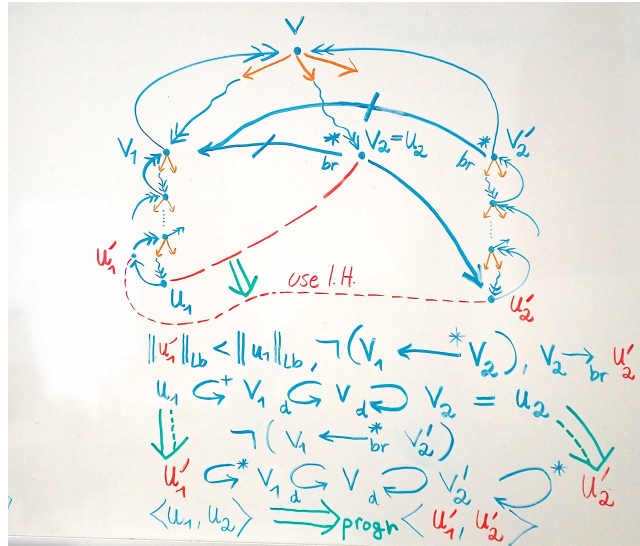 V
V₁
* V₂ = u₂
br
* V₂′
br
u₁′
u₁
use I.H.
u₂′
‖u₁′‖_Lb < ‖u₁‖_Lb, ¬(V₁ ⟵* V₂), V₂ →_br u₂′
u₁ ↺⁺ V₁ d↺ V d↻ V₂ = u₂
¬(V₁ ⟵*_br V₂′)
u₁′ ↺* V₁ d↺ V d↻ V₂′ ↻* u₂′
⟨u₁, u₂⟩ ⟹ progr ⟨u₁′, u₂′⟩